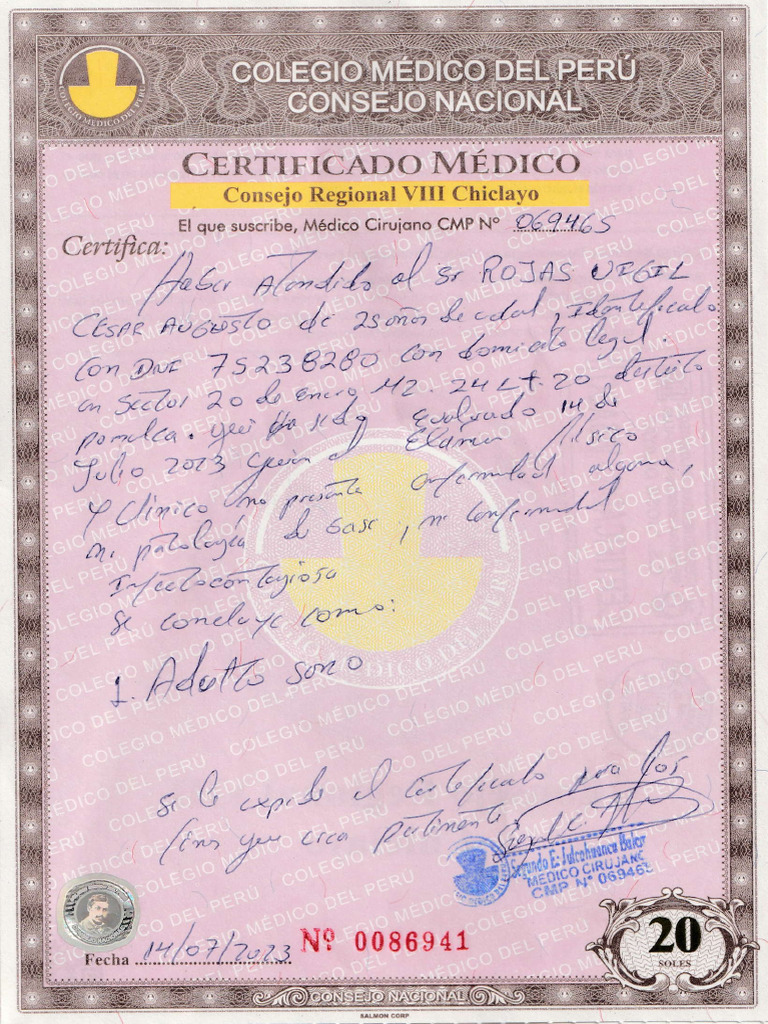 COLEGIO MÉDICO DEL PERÚ
CONSEJO NACIONAL
COLEGIO MEDICO DEL PERU
CERTIFICADO MÉDICO
Consejo Regional VIII Chiclayo
El que suscribe, Médico Cirujano CMP Nº 069465
Certifica:
Haber Atendido al Sr ROJAS VIGIL
CESAR AUGUSTO de 25 años de edad, Identificado
Con DNI 75238280 con domicilio legal.
en Sector 20 de enero MZ. 24 Lt. 20 distrito
pomalca. quien Ha sido evaluado 14 de
Julio 2023 quien al Examen físico
y Clínico no presenta enfermedad alguna,
ni patología de base, ni enfermedad
Infectocontagiosa
Se concluye como:
1. Adulto sano
Se le expide el certificado para los
fines que crea pertinente
Segundo E. Julcahuanca
MÉDICO CIRUJANO
CMP Nº 069465
Fecha 14/07/2023 Nº 0086941
20
SOLES
CONSEJO NACIONAL
SALMON CORP